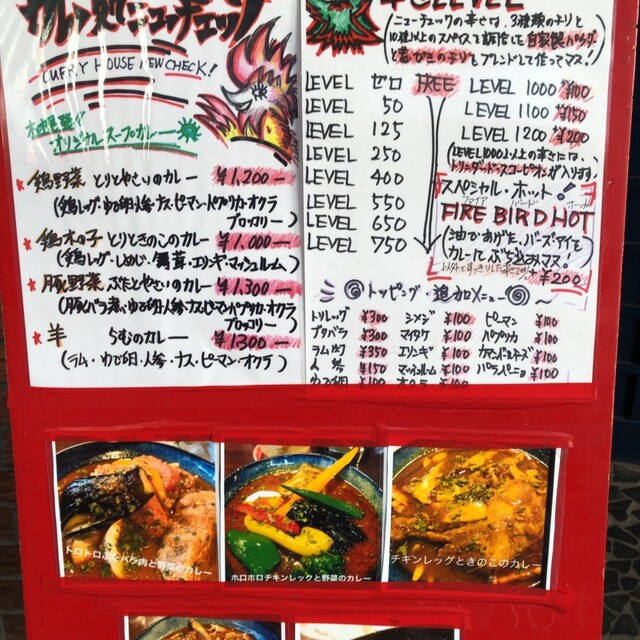 カレー処ニューチェック
CURRY HOUSE NEWCHECK!
オリジナルスープカレー
★ 鶏野菜 とりとやさいのカレー ¥1,200-
(鶏レッグ・ゆで卵・人参・ナス・ピーマン・パプリカ・オクラ
ブロッコリー)
★ 鶏木の子 とりときのこのカレー ¥1,000-
(鶏レッグ・しめじ・舞茸・エリンギ・マッシュルーム)
★ 豚野菜 ぶたとやさいのカレー ¥1,300-
(豚バラ煮・ゆで卵・人参・ナス・ピーマン・パプリカ・オクラ
ブロッコリー)
★ 羊 らむのカレー ¥1300-
(ラム・ゆで卵・人参・ナス・ピーマン・オクラ)
辛さLEVEL
ニューチェックの辛さは、3種類のチリと
10種以上のスパイスで調合した自家製パウダー
LEVEL ゼロ FREE
LEVEL 50
LEVEL 125
LEVEL 250
LEVEL 400
LEVEL 550
LEVEL 650
LEVEL 750
LEVEL 1000 ¥100
LEVEL 1100 ¥150
LEVEL 1200 ¥200
(LEVEL1000以上の辛さには、
トリニダード・スコーピオンが入ります)
スペシャル・ホット!
ファイア バード ホット
FIRE BIRD HOT
(油であげた、バーズ・アイを
カレーにぶち込みマス!)
+¥200
トッピング・追加メニュー
トリレッグ ¥300 シメジ ¥100 ピーマン ¥100
ブタバラ ¥300 マイタケ ¥100 パプリカ ¥100
ラム肉 ¥350 エリンギ ¥100 カマンベールチーズ ¥100
人参 ¥150 マッシュルーム ¥100 ハラペーニョ ¥100
ゆで卵 ¥100 オクラ ¥100
トロトロぶたバラ肉と野菜のカレー
ホロホロチキンレッグと野菜のカレー
チキンレッグときのこのカレー